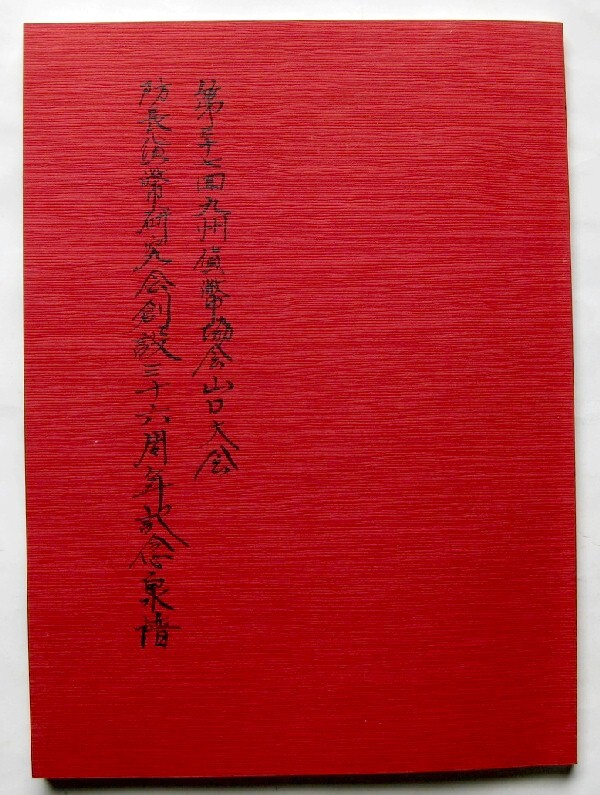 第五十二回九州貨幣協会山口大会
防長古幣研究会創設三十六周年記念泉譜